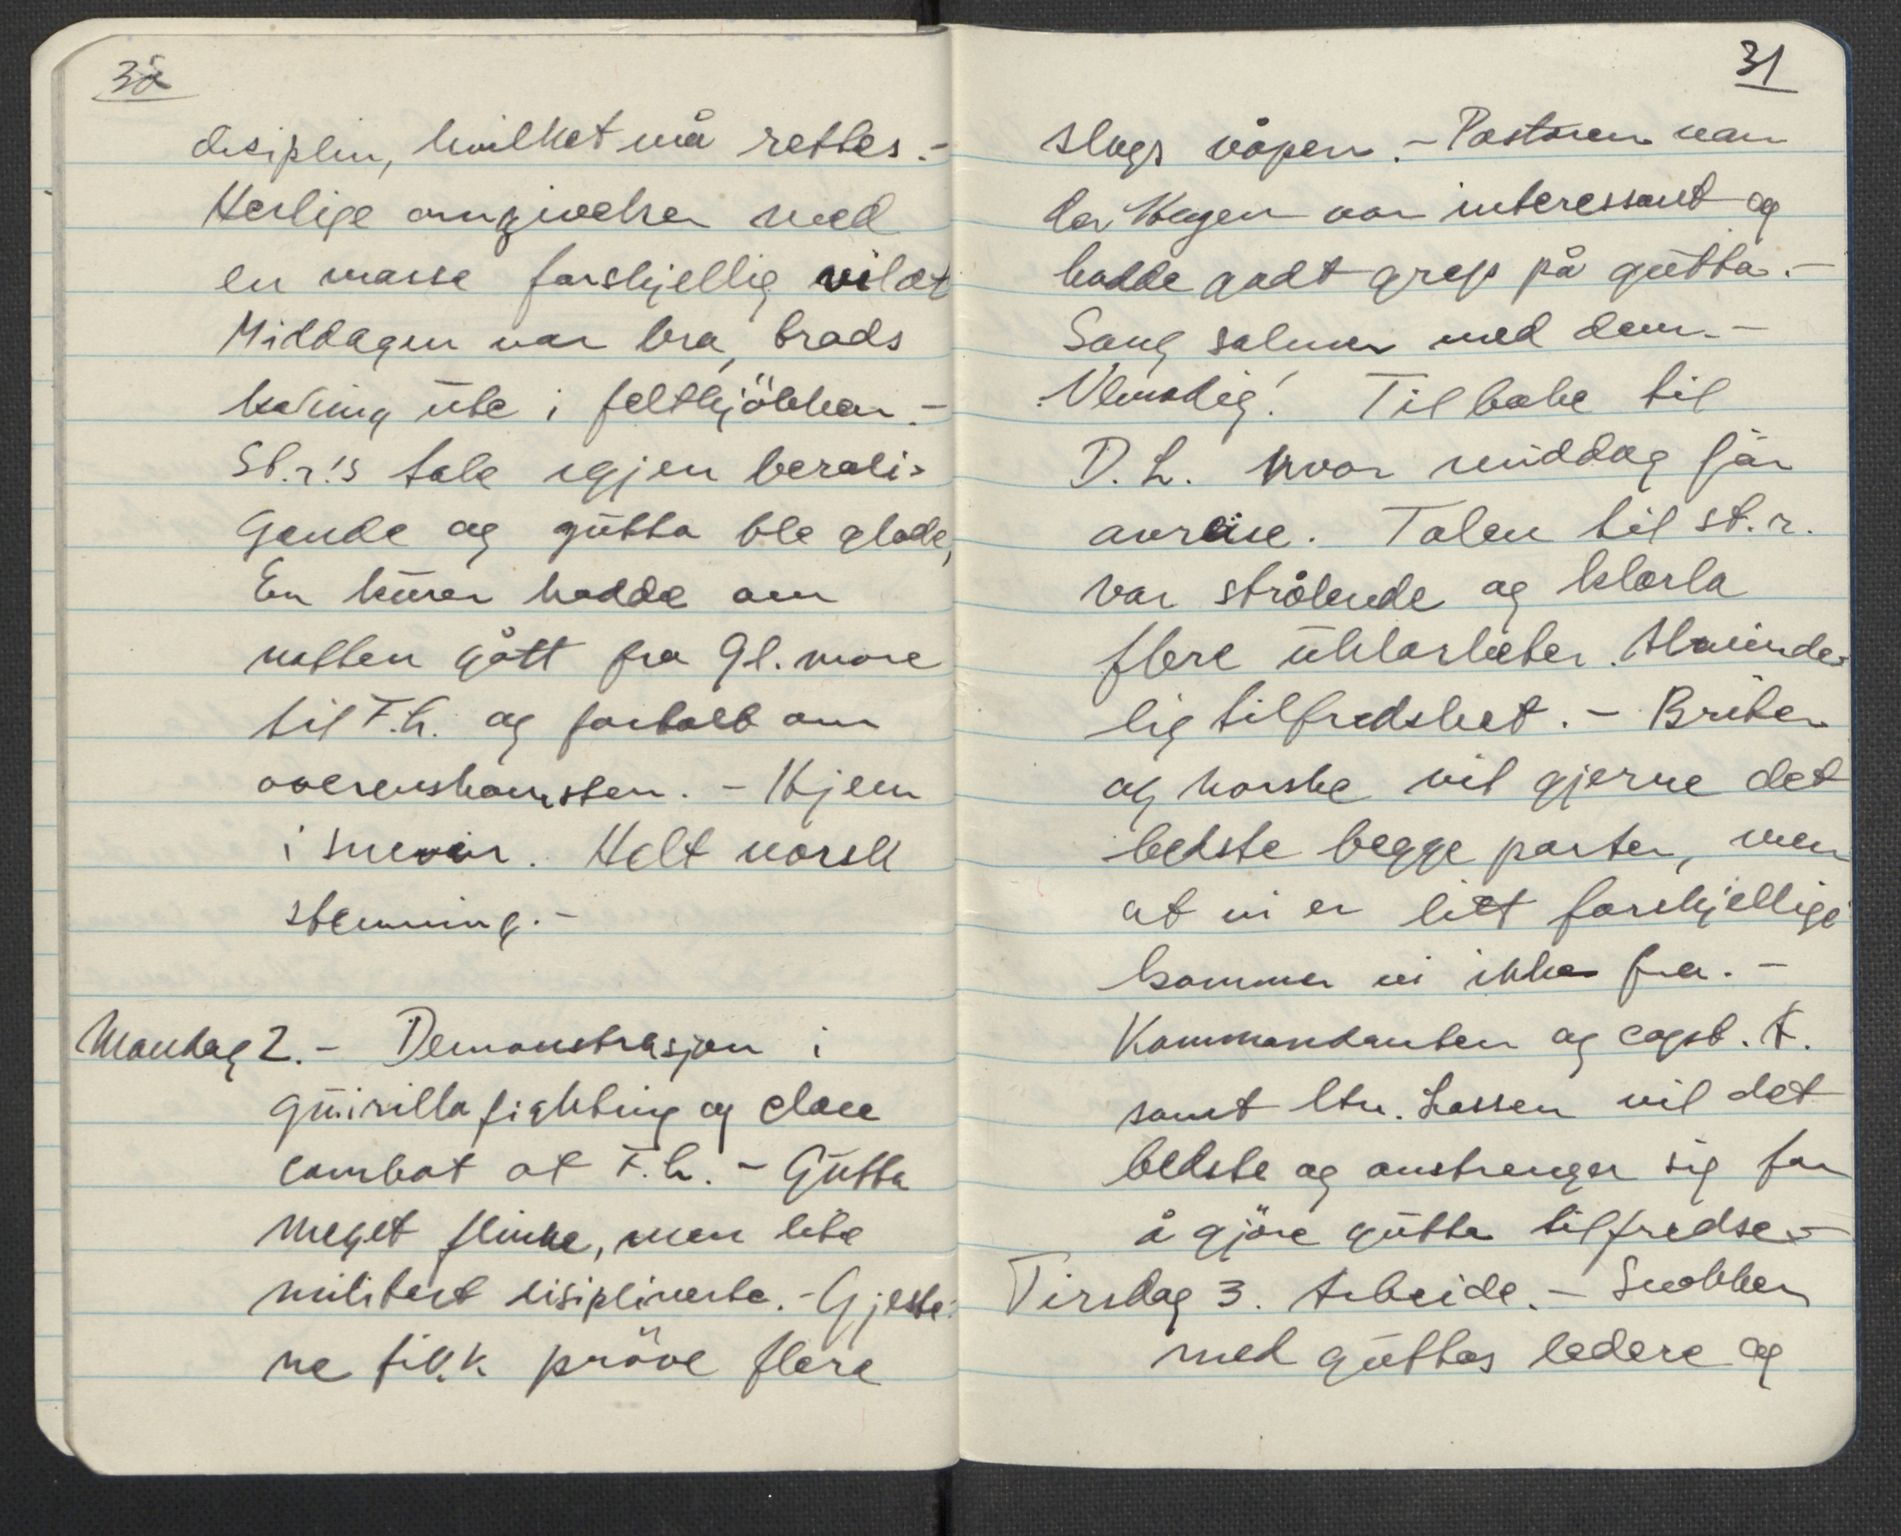 30
disiplin, hvilket må rettes.-
Herlige omgivelser med
en masse forskjellig vildt
Middagen var bra, brads
koking ute i feltkjökken.-
St.r.'s tale igjen beroli-
gende og gutta ble glade,
En kurer hadde om
natten gått fra Gl. more
til F.h. og fortalt om
overenskomsten. - Hjem
i snevær. Helt norsk
stemning.-
Mandag 2. - Demonstrasjon i
guirilla fighting og close
combat at F.h. - Gutta
meget flinke, men lite
militært disiplinerte. - Gjeste-
ne fikk pröve flere
31
slags våpen. - Pastoren van
der Hagen var interessant og
hadde godt grep på gutta.-
Sang salmer med dem.-
Vemodig! Tilbake til
D.L. hvor middag för
avreise. Talen til st.r.
var strålende og klarla
flere uklarheter. Alminde-
lig tilfredshet. - Briter
og norske vil gjerne det
bedste begge parter, men
at vi er litt forskjellige
kommer vi ikke fra. -
Kommandanten og capt. K.
samt ltn. Lassen vil det
bedste og anstrenger sig for
å gjöre gutta tilfredse -
Tirsdag 3. Arbeide. - Snakken
med guttas ledere og